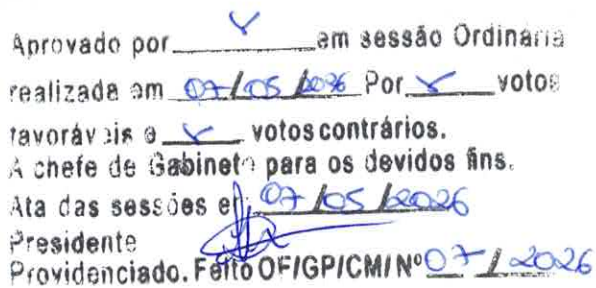 Aprovado por em sessão Ordinária
realizada em 07/05/2026 Por votos
favoráveis e votos contrários.
A chefe de Gabinete para os devidos fins.
Ata das sessões em 07/05/2026
Presidente
Providenciado. Feito OF/GP/CMI Nº 07/2026